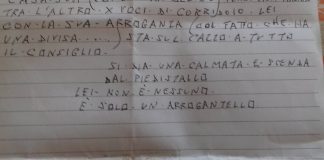 TRA L'ALTRO IN VOCI DI CORRIDOIO LEI
CON LA SUA ARROGANZA (COL FATTO CHE HA
UNA DIVISA.....) STA SUL CALIO A TUTTO
IL CONSIGLIO.
SI DIA UNA CALMATA E SCENDA
DAL PIEDISTALLO
LEI NON È NESSUNO
È SOLO UN ARROGANTELLO